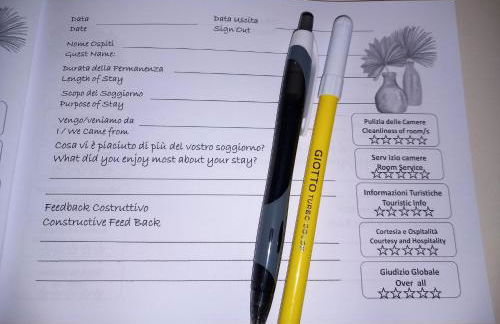 Data
Data Uscita
Date
Sign Out
Nome Ospiti
Guest Name:
Durata della Permanenza
Length of Stay
Scopo del Soggiorno
Purpose of Stay
Vengo/veniamo da
I / We Came from
Cosa vi è piaciuto di più del vostro soggiorno?
What did you enjoy most about your stay?
Feedback Costruttivo
Constructive Feed Back
Pulizia delle Camere
Cleanliness of room/s
Serv izio camere
Room Service
Informazioni Turistiche
Touristic Info
Cortesia e Ospitalità
Courtesy and Hospitality
Giudizio Globale
Over all
GIOTTO TURBO COLOR